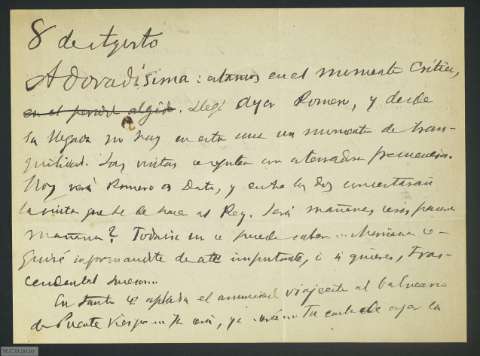 8 de Agosto
Adoradísima: estamos en el momento crítico,
en el periodo álgido. Llegó ayer Romero, y desde
su llegada no hay en esta casa un momento de tran-
quilidad. Las visitas se repiten con aterradora frecuencia.
Hoy verá Romero a Dato, y entre los dos concertarán
la visita que he de hacer al Rey. Será mañana, será pasado
mañana? Todavía no se puede saber... Mañana se-
guiré informándote de este importante, o si quieres, tras-
cendental suceso.
En tanto se aplaza el anunciado viajecito al balneario
de Puente Viesgo... Ya veré, ya veré... Tu carta de ayer la